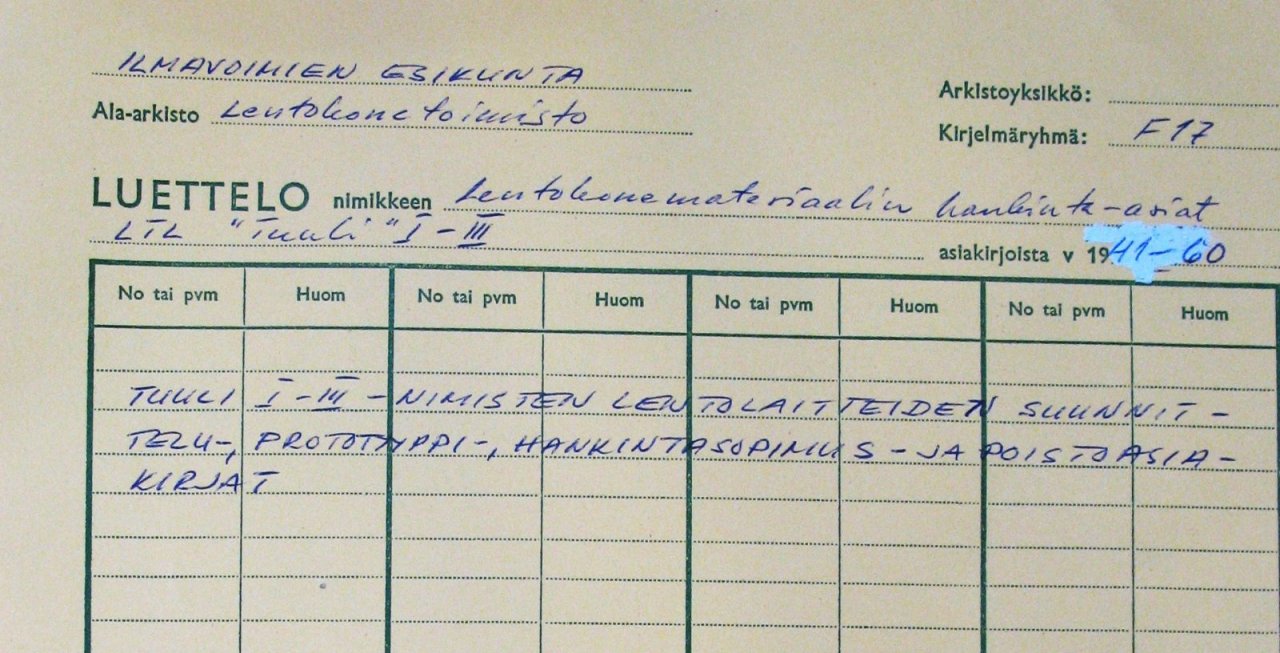 ILMAVOIMIEN ESIKUNTA
Ala-arkisto Lentokonetoimisto
Arkistoyksikkö:
Kirjelmäryhmä: F 17
LUETTELO nimikkeen Lentokonemateriaalin hankinta-asiat
LTL "Tuuli" I - III
asiakirjoista v 1941-60
No tai pvm Huom No tai pvm Huom No tai pvm Huom No tai pvm Huom
TUULI I - III - NIMISTEN LENTOLAITTEIDEN SUUNNIT -
TELU-, PROTOTYYPPI-, HANKINTASOPIMUS - JA POISTOASIA -
KIRJAT